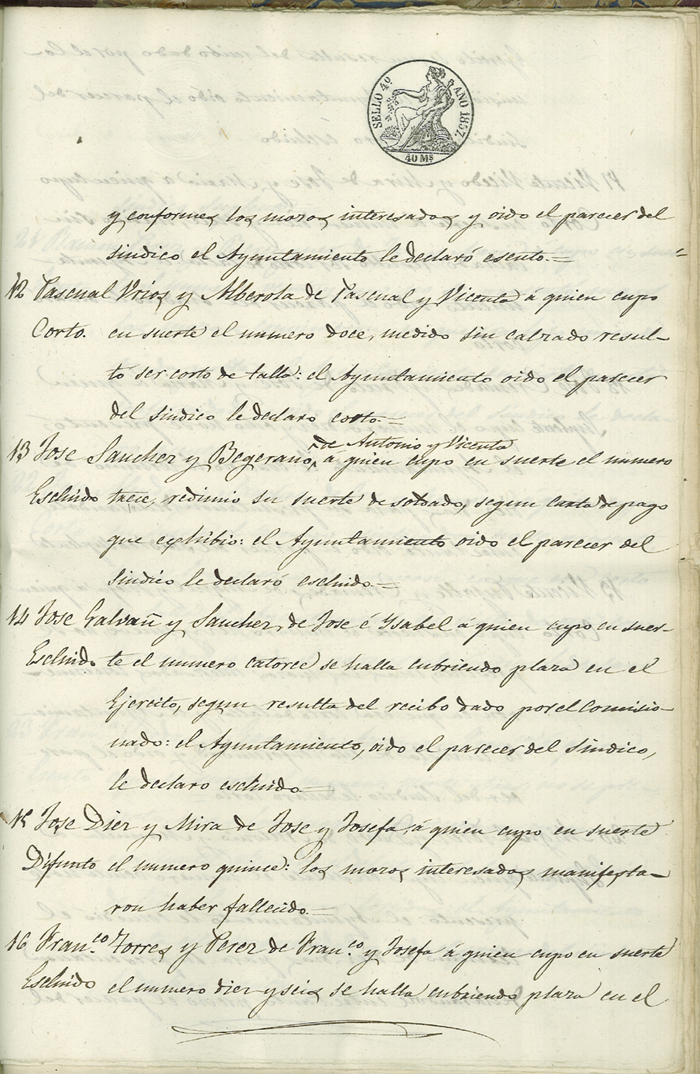 SELLO 4º AÑO 1857.
40 Ms
y conformes los mozos interesados y oido el parecer del
sindico el Ayuntamiento le declaró esento.=
12 Pascual Vrios y Alberola de Pascual y Vicenta á quien cupo
Corto. en suerte el numero doce, medido sin calzado resul-
tó ser corto de talla: el Ayuntamiento oido el parecer
del sindico le declaro corto.=
de Antonio y Vicenta
13 Jose Sanchez y Begerano, á quien cupo en suerte el numero
Escluido trece, redimio su suerte de soldado, segun carta de pago
que exhibio: el Ayuntamiento oido el parecer del
sindico le declaró escluido.=
14 Jose Galvañ y Sanchez, de Jose é Ysabel á quien cupo en suer-
Escluido te el numero catorce se halla cubriendo plaza en el
Ejercito, segun resulta del recibo dado por el Comisio-
nado: el Ayuntamiento, oido el parecer del Sindico,
le declaro escluido.=
15 Jose Diez y Mira de Jose y Josefa, á quien cupo en suerte
Difunto el numero quince: los mozos interesados manifesta-
ron haber fallecido.=
16 Fran.co Torres y Perez de Fran.co y Josefa á quien cupo en suerte
Escluido el numero diez y seis se halla cubriendo plaza en el